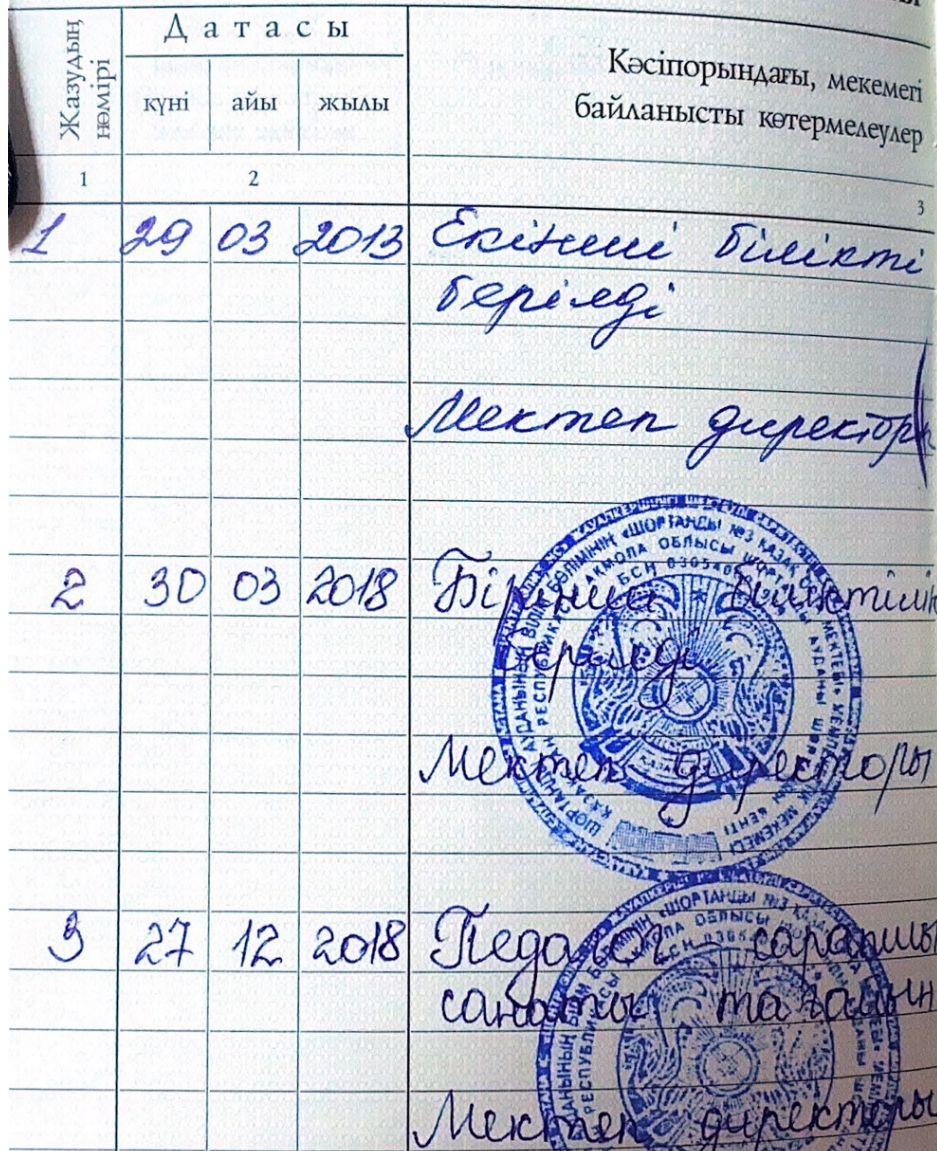 Жазудың нөмірі
Датасы
күні айы жылы
Кәсіпорындағы, мекемегі
байланысты көтермелеулер
1 2 3
1 29 03 2013 Екінші білікті
берілді
Мектеп директоры
2 30 03 2018 Бірінші біліктілік
берілді
Мектеп директоры
3 27 12 2018 Педагог - сарапшы
санаты тағайын
Мектеп директоры
«ШОРТАНДЫ №3 ҚАЗАҚ ОРТА МЕКТЕБІ»
АҚМОЛА ОБЛЫСЫ ШОРТАНДЫ АУДАНЫ